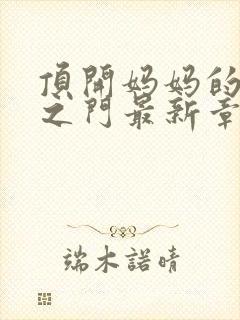 頂開妈妈的
之門最新章
端木諾晴